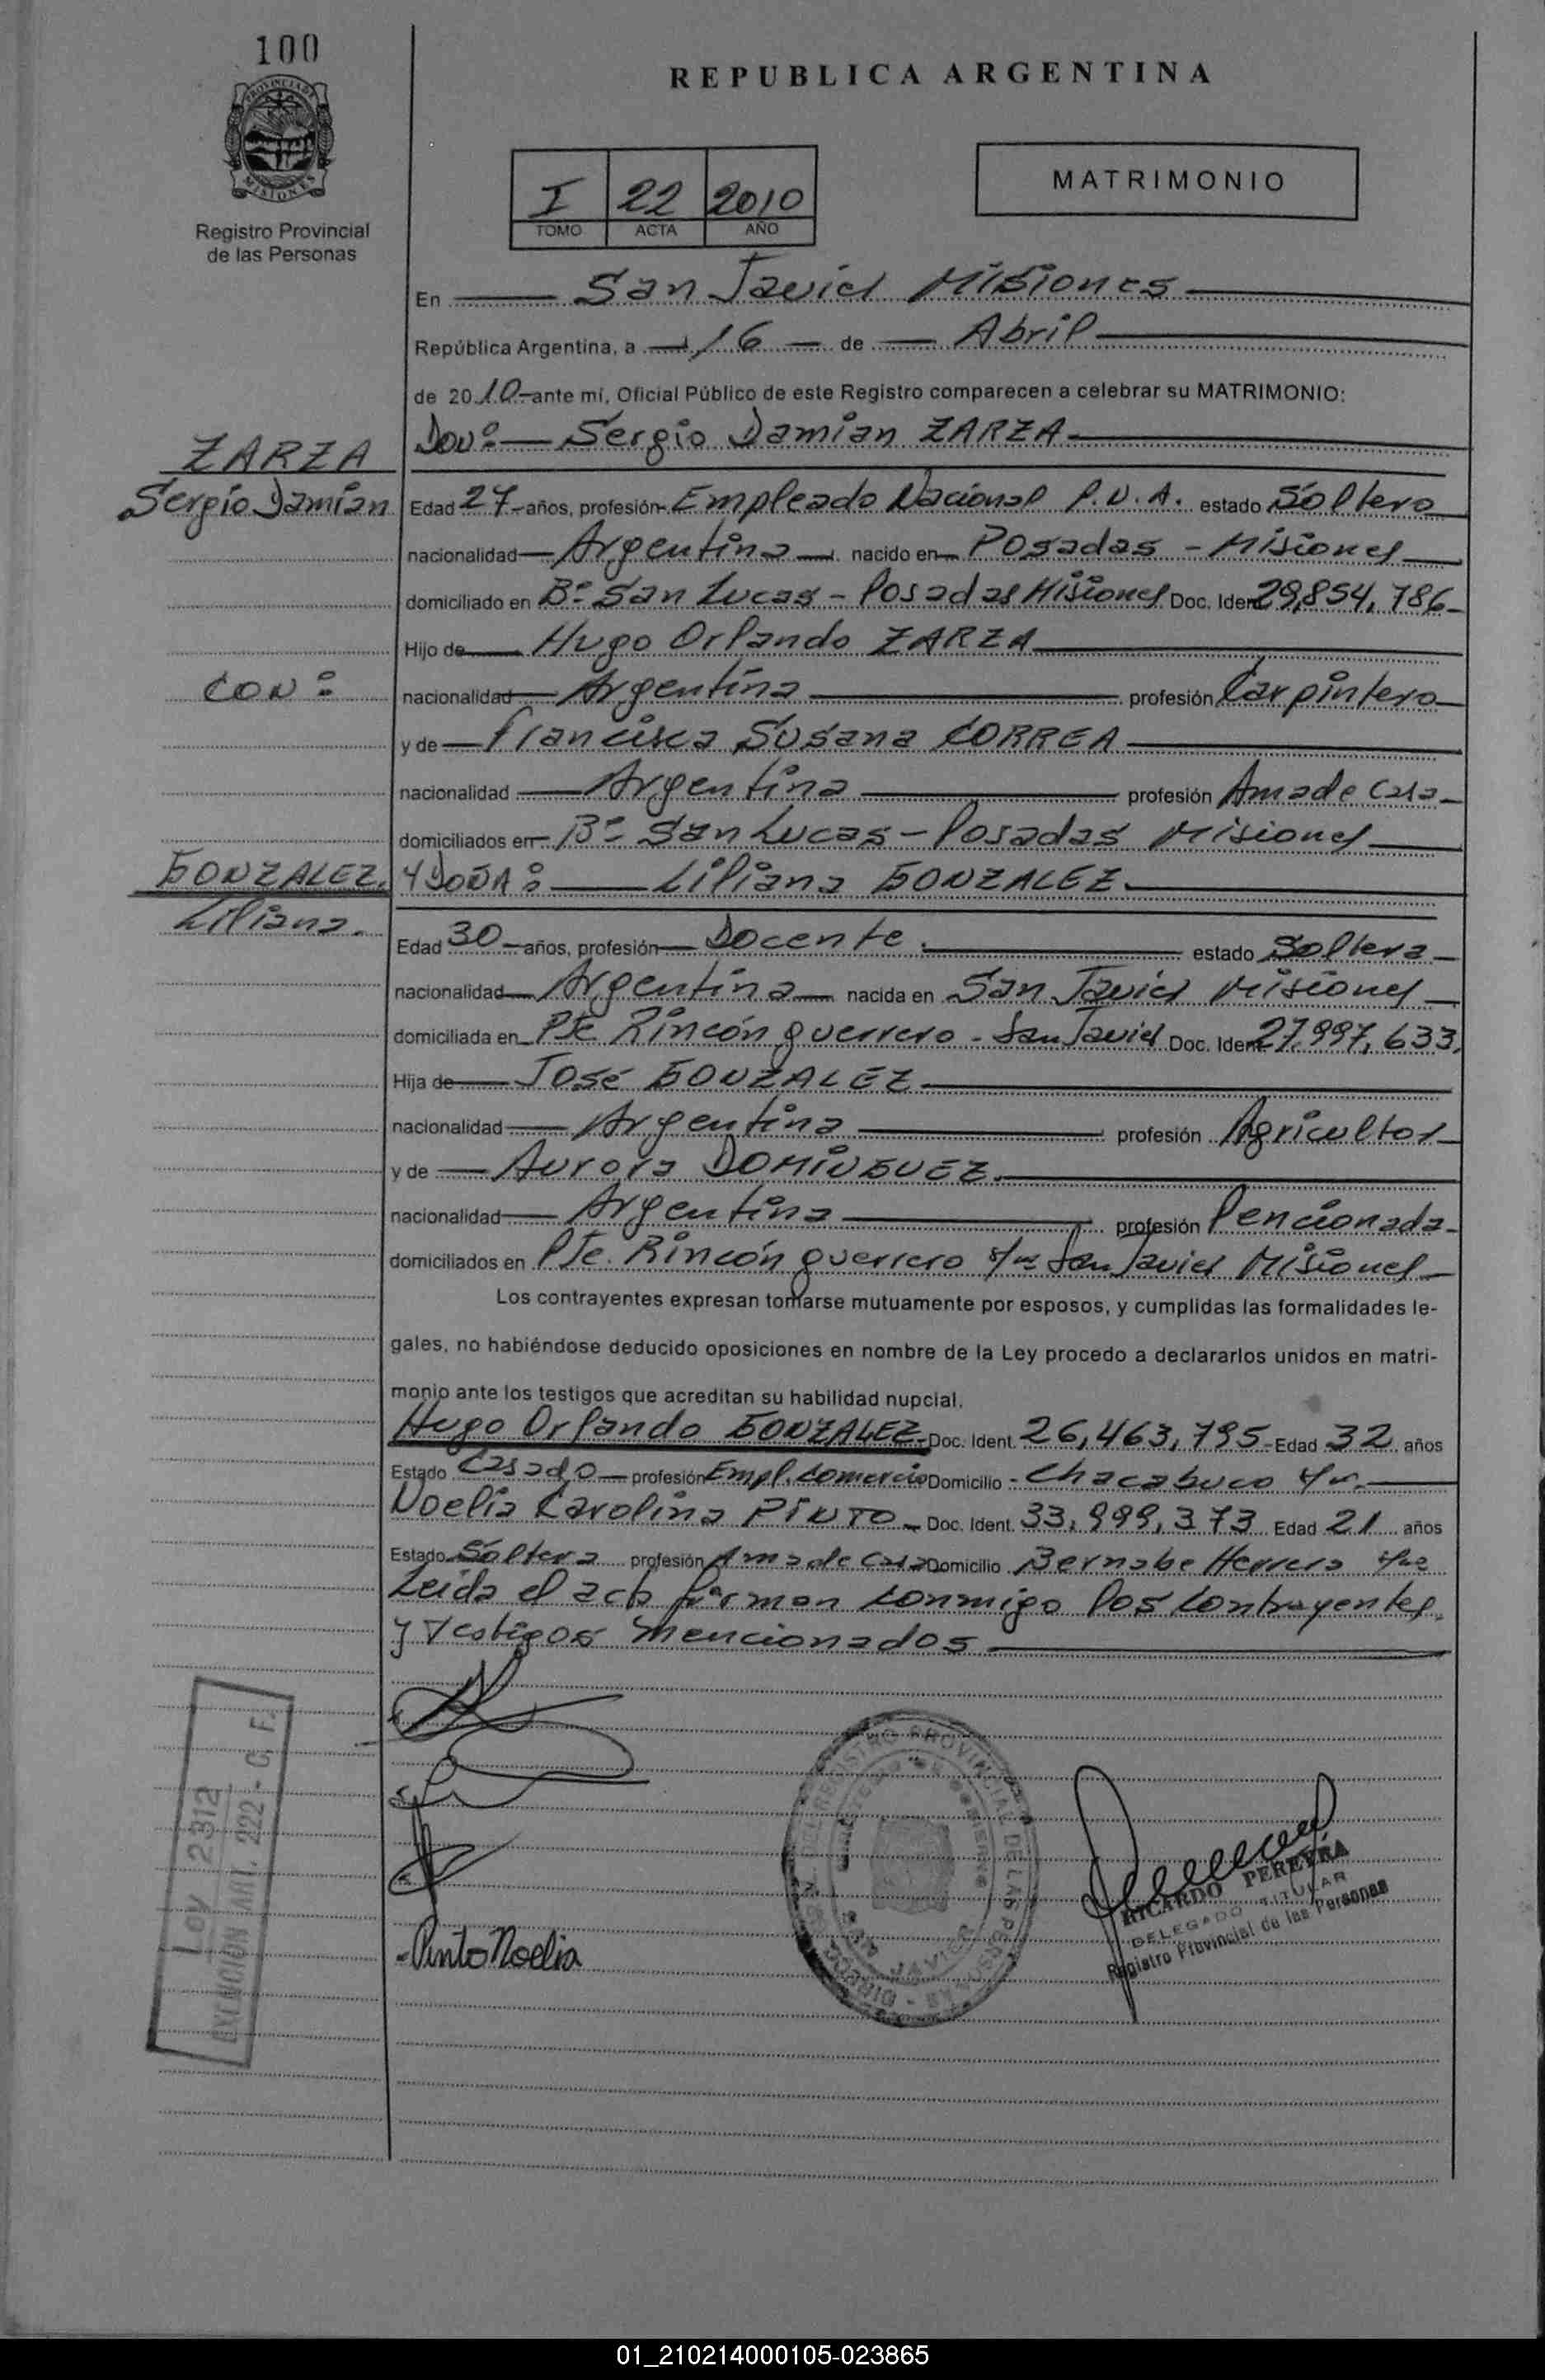 100
REPUBLICA ARGENTINA
PROVINCIA DE
MISIONES
Registro Provincial
de las Personas
MATRIMONIO
I 22 2010
TOMO ACTA AÑO
En San Javier Misiones
República Argentina, a 16 de Abril
de 2010 ante mí, Oficial Público de este Registro comparecen a celebrar su MATRIMONIO:
DON: Sergio Damian ZARZA
ZARZA
Sergio Damian
Edad 27 años, profesión Empleado Nacional P.N.A. estado Soltero
nacionalidad Argentina nacido en Posadas - Misiones
domiciliado en Bº San Lucas - Posadas Misiones Doc. Ident 29,854,786
Hijo de Hugo Orlando ZARZA
CON:
nacionalidad Argentina profesión Carpintero
y de Francisca Susana CORREA
nacionalidad Argentina profesión Ama de Casa
domiciliados en Bº San Lucas - Posadas Misiones
GONZALEZ.
Liliana.
Y DOÑA: Liliana GONZALEZ
Edad 30 años, profesión Docente. estado Soltera
nacionalidad Argentina nacida en San Javier Misiones
domiciliada en Pje Rincón guerrero - San Javier Doc. Ident 27,997,633.
Hija de José GONZALEZ
nacionalidad Argentina profesión Agricultor
y de Aurora DOMINGUEZ.
nacionalidad Argentina profesión Pencionada
domiciliados en Pje. Rincón guerrero s/nº San Javier Misiones
Los contrayentes expresan tomarse mutuamente por esposos, y cumplidas las formalidades le-
gales, no habiéndose deducido oposiciones en nombre de la Ley procedo a declararlos unidos en matri-
monio ante los testigos que acreditan su habilidad nupcial.
Hugo Orlando GONZALEZ Doc. Ident. 26,463,795 Edad 32 años
Estado Casado profesión Empl. Comercio Domicilio - Chacabuco s/n.
Noelia Carolina PINTO Doc. Ident. 33,999,373 Edad 21 años
Estado Soltera profesión Ama de Casa Domicilio Bernabe Herrera s/nº
Leida el acta firman conmigo los contrayentes
y testigos mencionados
Ley 2312
EXENCION ART. 222 - C.F.
REGISTRO PROVINCIAL DE LAS PERSONAS
SAN JAVIER
Pinto Noelia
RICARDO PEREYRA
DELEGADO TITULAR
Registro Provincial de las Personas
01_210214000105-023865